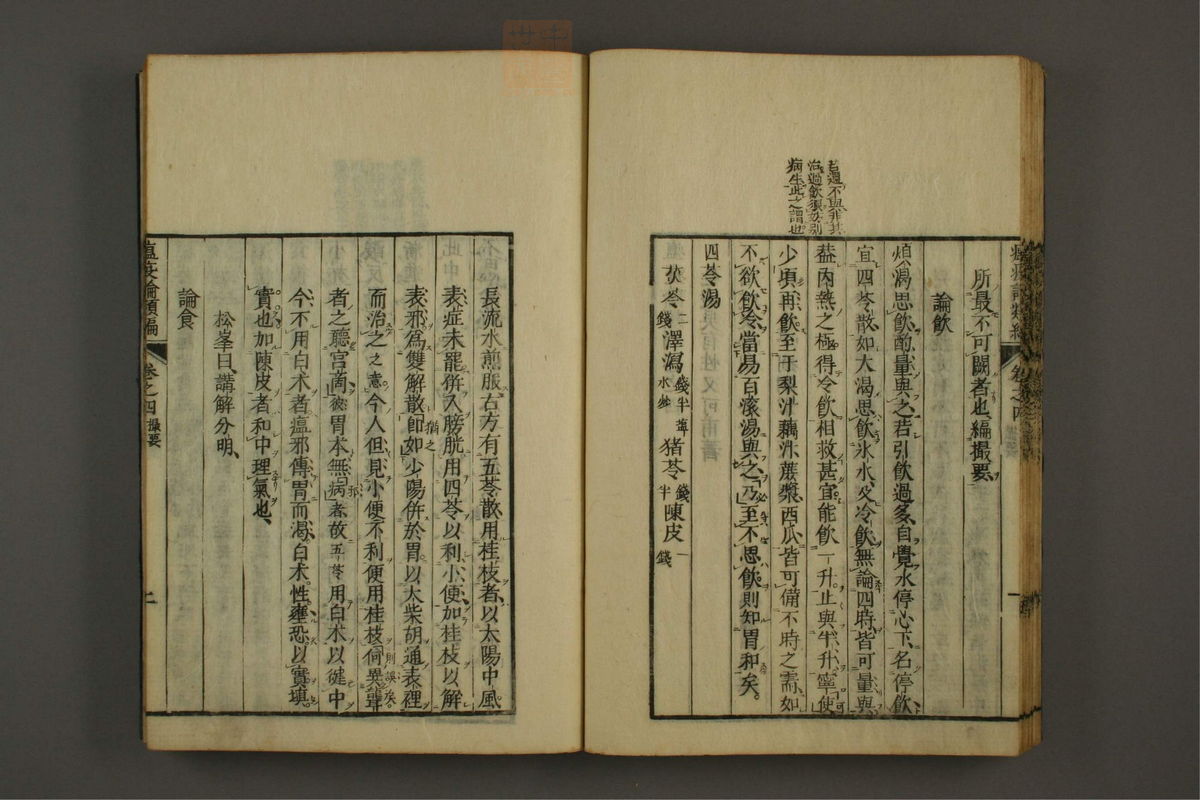 若過不與非其
治過飲須安別
病生此之謂也
所最不可闕者也編撮要
論飲
煩渴思飲酌量與之若引飲過多自覺水停心下名停飲
宜四苓散如大渴思飲氷水及冷飲無論四時皆可量與
蓋內熱之極得冷飲相救甚宜能飲一升止與半升寧使
少頃再飲至于梨汁藕汁蔗漿西瓜皆可備不時之需如
不欲飲冷當易百滾湯與之乃至不思飲則知胃和矣
四苓湯
茯苓二錢澤瀉錢半猪苓錢半陳皮一錢
長流水煎服右方有五苓散用桂枝者以太陽中風
表症未罷併入膀胱用四苓以利小便加桂枝以解
表邪為雙解散即如少陽併於胃以大柴胡通表裡
而治之之意今人但見小便不利便用桂枝何異聾
者之聽宮商胃本無病者故五苓用白朮以健中
今不用白朮者瘟邪傳胃而渴白朮性壅恐以實填
實也加陳皮者和中理氣也
松峯曰講解分明
論食
瘟疫論類編
卷之四 撮要